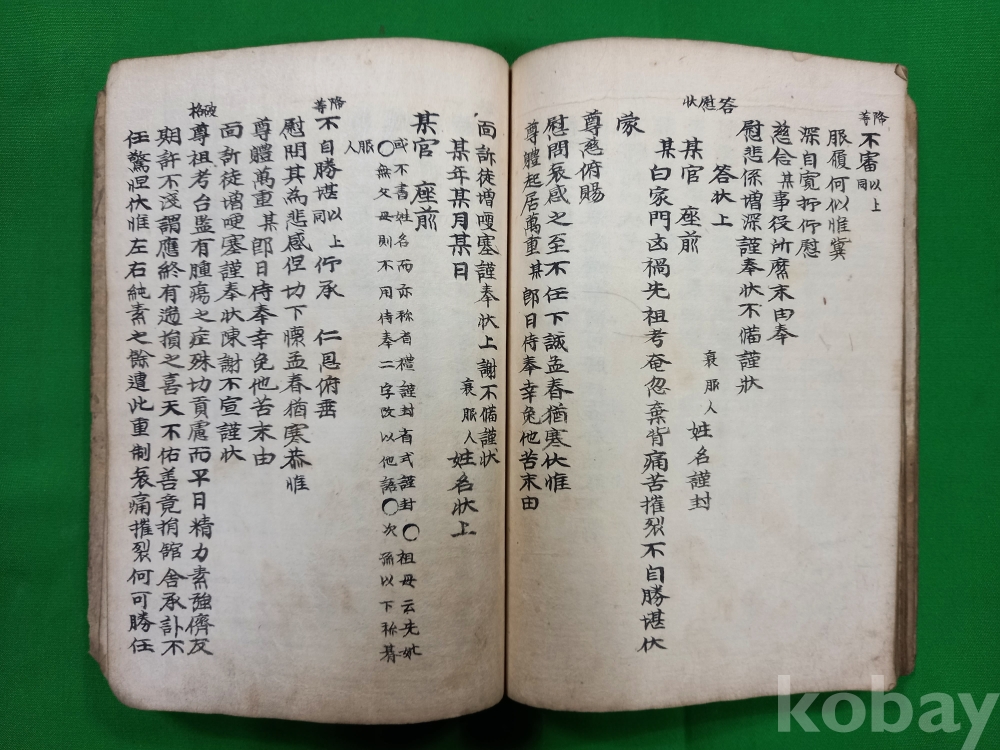 降等
不審 以上同
服履何似惟冀
深自寬抑仰慰
慈念某事役所縻末由奉
慰悲係增深謹奉狀不備謹狀
答慰狀
答狀上
某官 座前
哀服人 姓名謹封
某白家門凶禍先祖考奄忽棄背痛苦摧裂不自勝堪伏
蒙
尊慈俯賜
慰問哀感之至不任下誠孟春猶寒伏惟
尊體起居萬重某郎日侍奉幸免他苦末由
面訴徒增哽塞謹奉狀上謝不備謹狀
某年某月某日
哀服人 姓名狀上
某官 座前
或不書姓名而亦称省禮謹封省式謹封○祖母云先妣
○無父母則不用侍奉二字改以他語○次孫以下称朞
服人
降等
不自勝堪 以上同 仰承 仁恩俯垂
慰問其為悲感但切下懷孟春猶寒恭惟
尊體萬重某郎日侍奉幸免他苦末由
面訴徒增哽塞謹奉狀陳謝不宣謹狀
破格
尊祖考台監有腫瘍之症殊切貢慮而平日精力素強儕友
期許不淺謂應終有過損之喜天不佑善竟捐館舍承訃不
任驚怛伏惟左右純素之餘遭此重制哀痛摧裂何可勝任
kobay